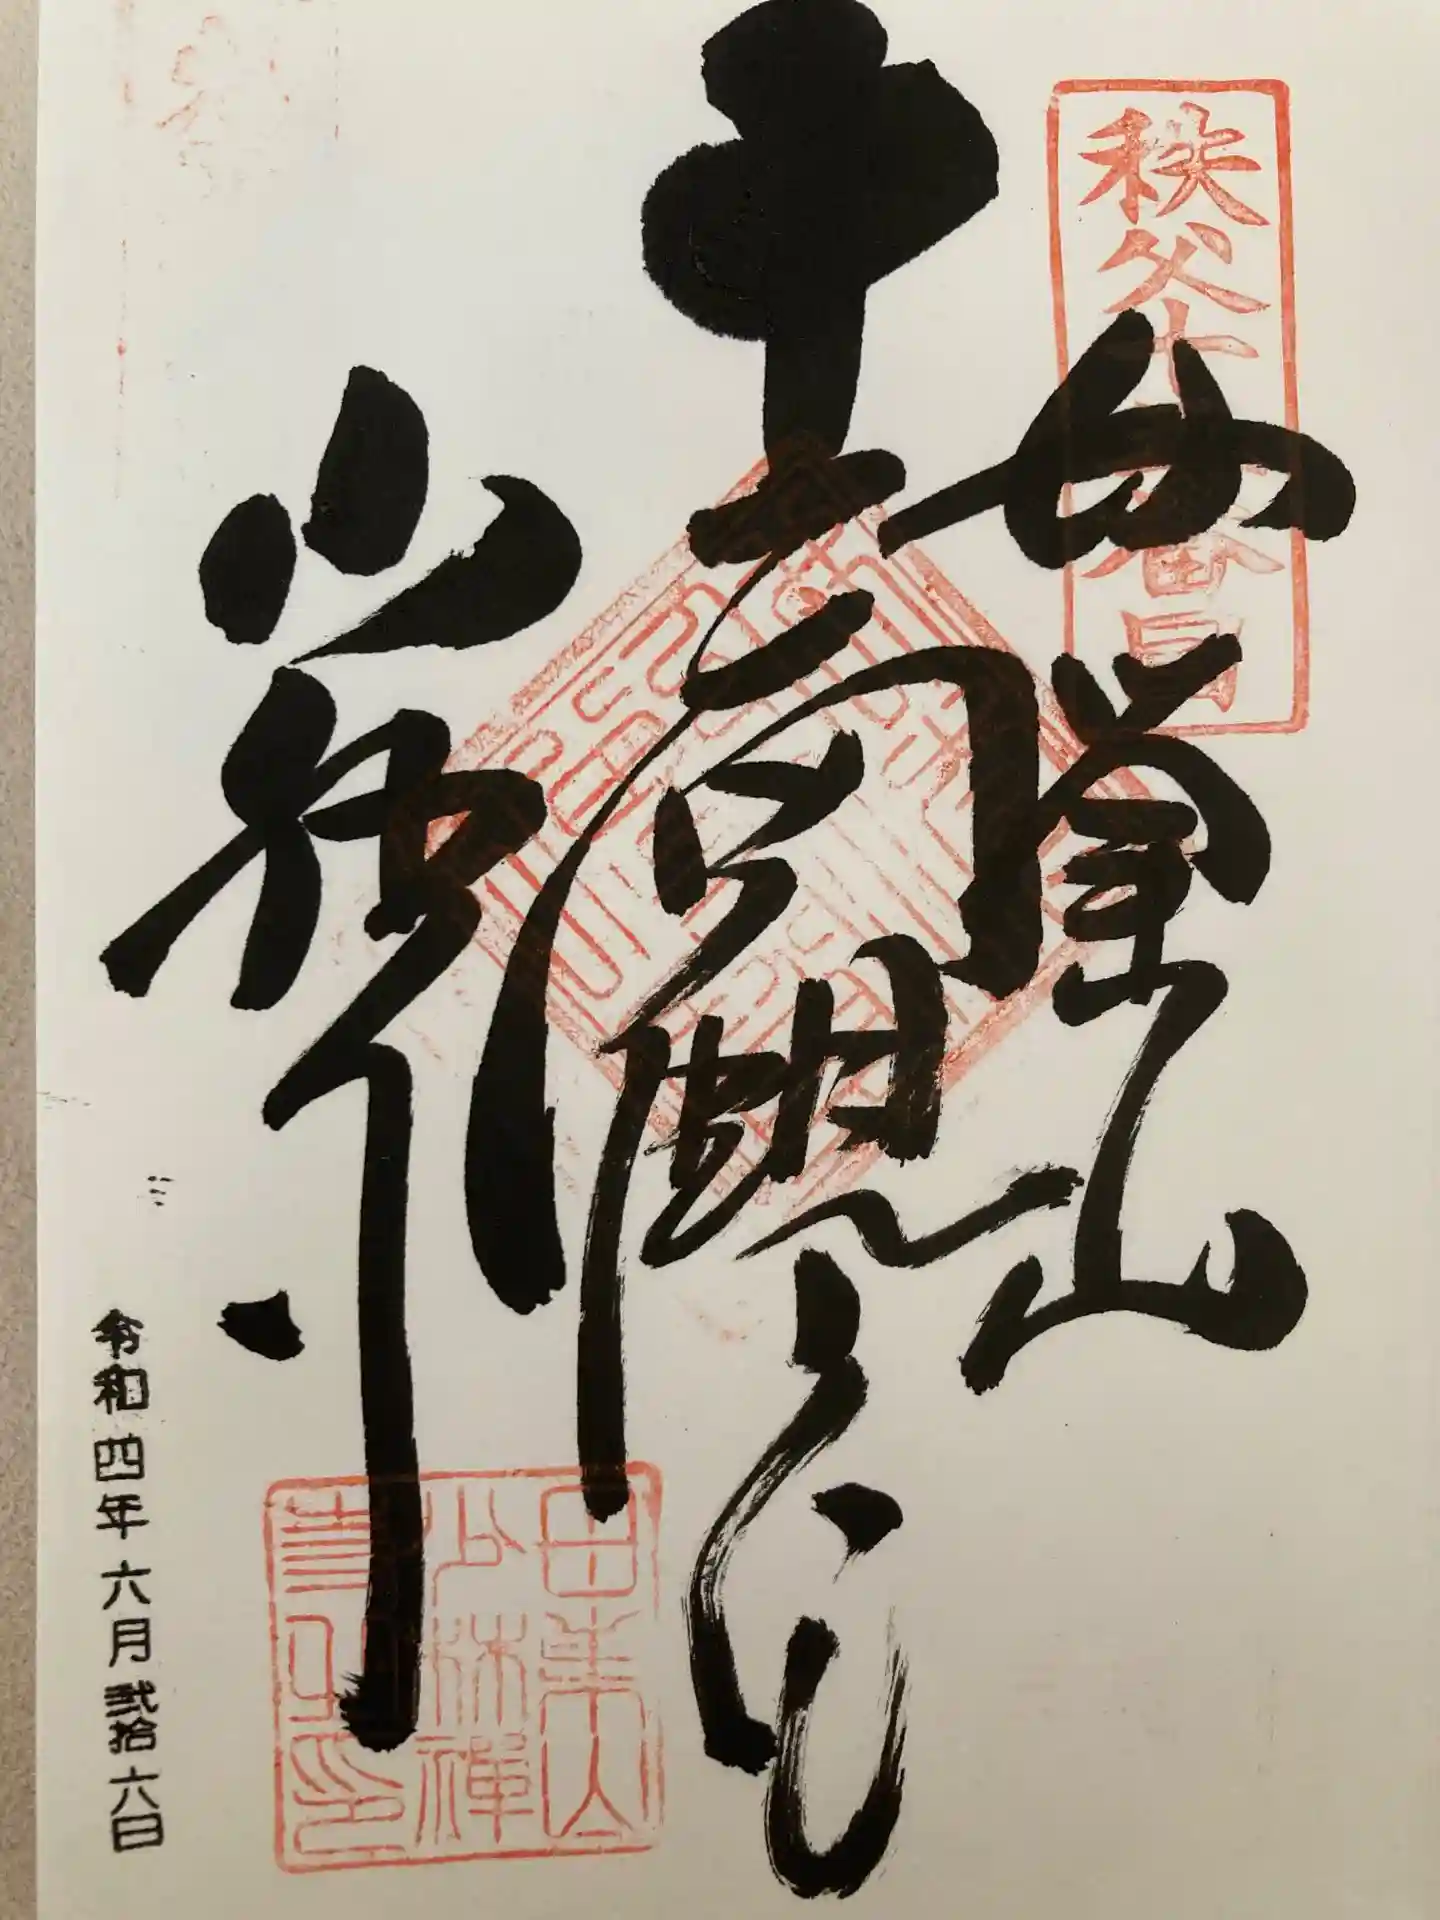 秩父十番
母巣山
十一面観世音
少林寺
令和四年六月弐拾六日
母巣山
少林禅
寺之印